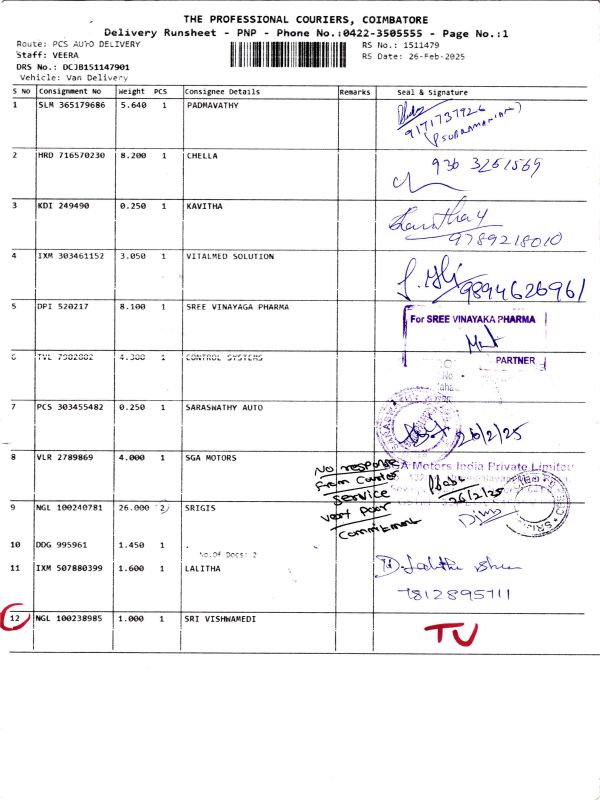 THE PROFESSIONAL COURIERS, COIMBATORE
Delivery Runsheet - PNP - Phone No.:0422-3505555 - Page No.:1
Route: PCS AUTO DELIVERY
RS No.: 1511479
Staff: VEERA
RS Date: 26-Feb-2025
DRS No.: DCJB151147901
Vehicle: Van Delivery
S No Consignment No Weight PCS Consignee Details Remarks Seal & Signature
1 SLM 365179686 5.640 1 PADMAVATHY
9171737926
(SUBRAMANIAN)
2 HRD 716570230 8.200 1 CHELLA
936 3261569
3 KDI 249490 0.250 1 KAVITHA
Kavitha
9789218010
4 IXM 303461152 3.050 1 VITALMED SOLUTION
9894626961
5 DPI 520217 8.100 1 SREE VINAYAGA PHARMA
For SREE VINAYAKA PHARMA
PARTNER
6 TVL 7982882 4.300 1 CONTROL SYSTEMS
7 PCS 303455482 0.250 1 SARASWATHY AUTO
26/2/25
8 VLR 2789869 4.000 1 SGA MOTORS
A Motors India Private Limited
No response
From Courier
service
very poor
Commitment
26/2/25
9 NGL 100240781 26.000 2 SRIGIS
10 DDG 995961 1.450 1 .
No.Of Docs: 2
11 IXM 507880399 1.600 1 LALITHA
D. Lalitha
7812895711
12 NGL 100238985 1.000 1 SRI VISHWAMEDI
TV